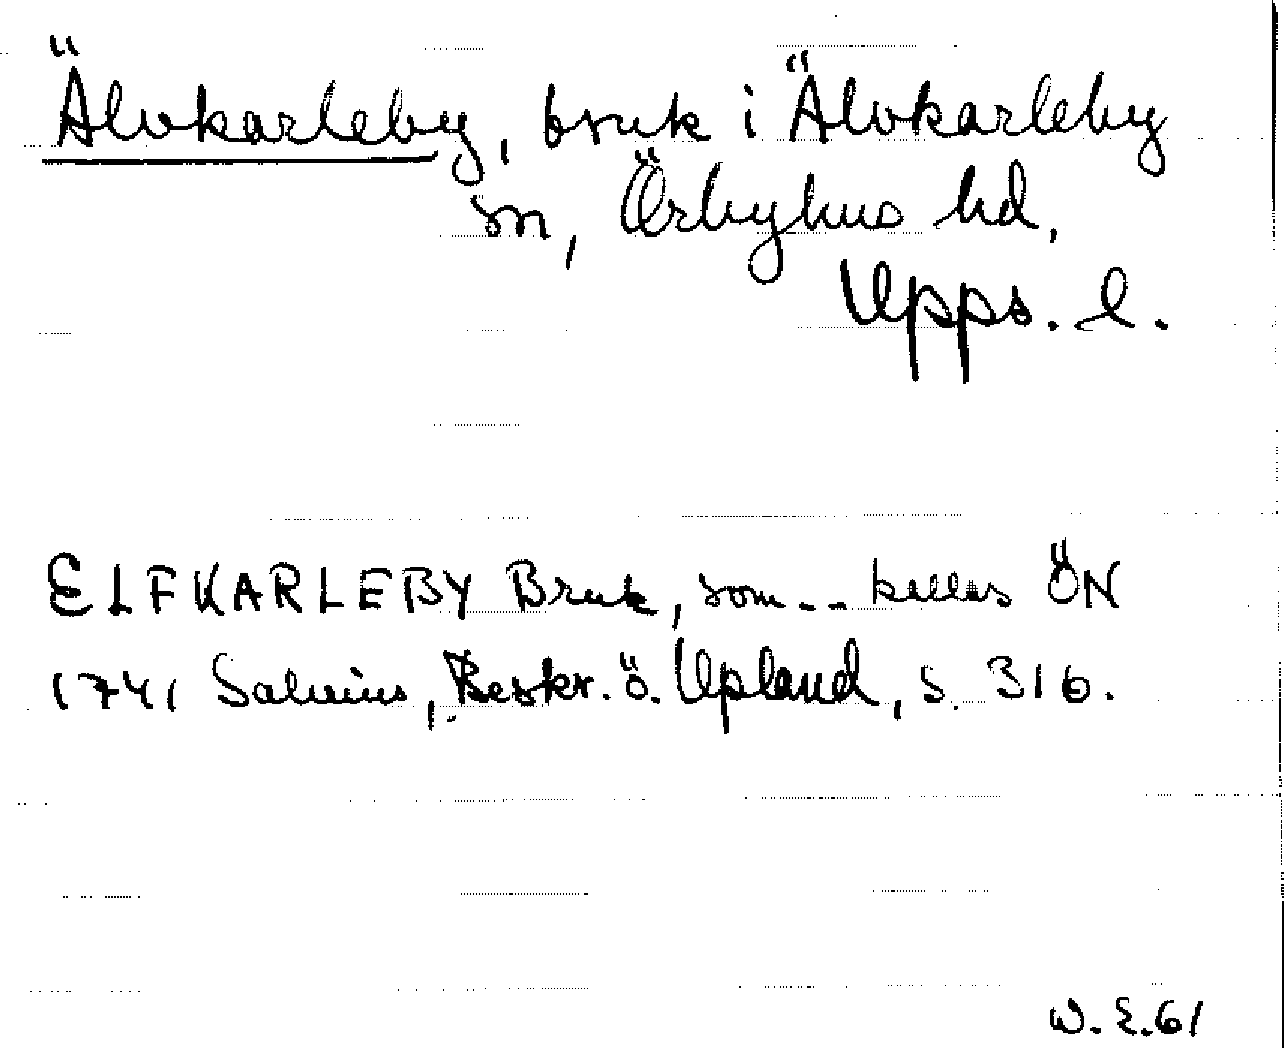 Älvkarleby, bruk i Älvkarleby
sn, Örbyhus hd,
Upps. l.
ELFKARLEBY Bruk, som -- kallas ÖN
1741 Salvius, Beskr. ö. Upland, s. 316.
W. E. 61